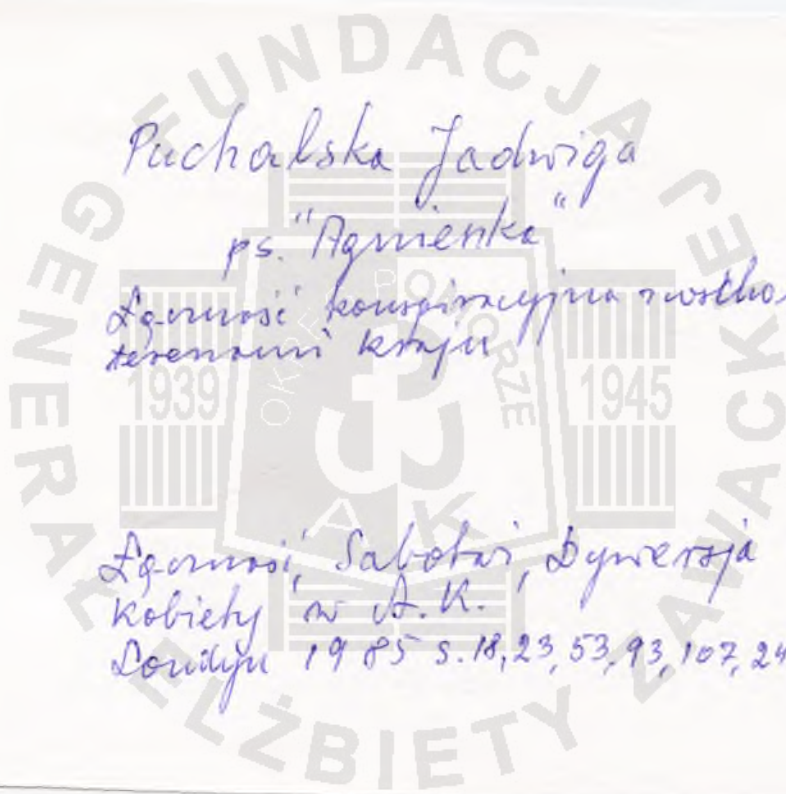 Puchalska Jadwiga
ps. "Agnieszka"
Łączność konspiracyjna
terenami kraju
Łączność, Sabotaż, Dywersja
Kobiety w A.K.
Londyn 1985 s. 18, 23, 53, 93, 107, 24
FUNDACJA
GENERAŁ ELŻBIETY ZAWACKIEJ
OKRĘG POMORZE
1939
1945
AK